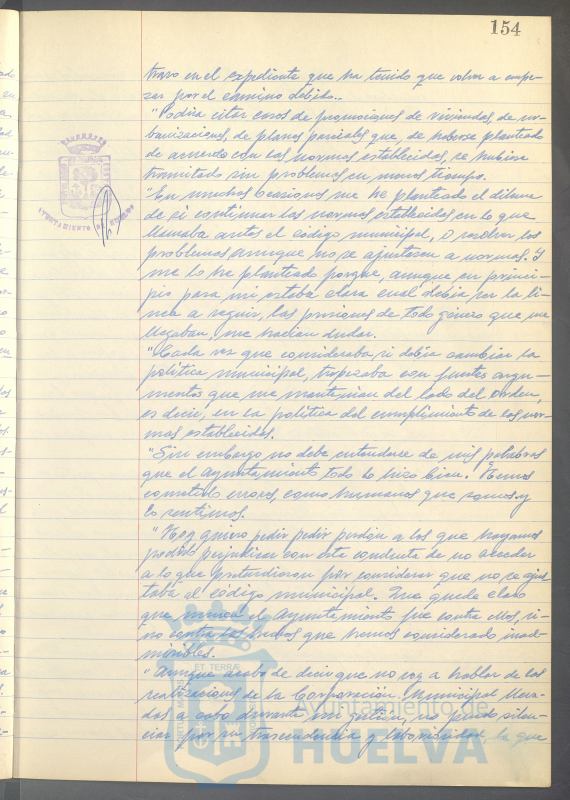 154
traso en el expediente que ha tenido que volver a empe-
zar por el camino debido..
"Podría citar casos de promociones de viviendas, de ur-
banizaciones, de planos parciales que, de haberse planteado
de acuerdo con las normas establecidas, se hubiese
tramitado sin problemas en menos tiempo.
"En muchas ocasiones me he planteado el dilema
de si continuar las normas establecidas en lo que
llamaba antes el código municipal, o resolver los
problemas aunque no se ajustasen a normas. Y
me lo he planteado porque, aunque en princi-
pio para mí estaba clara cual debía ser la lí-
nea a seguir, las presiones de todo género que me
llegaban, me hacían dudar.
"Cada vez que consideraba, si debía cambiar la
política municipal, tropezaba con fuertes argu-
mentos que me mantenían del lado del orden,
es decir, en la política del cumplimiento de las nor-
mas establecidas.
"Sin embargo no debe entenderse de mis palabras
que el Ayuntamiento todo lo hizo bien. Hemos
cometido errores, como humanos que somos y
lo sentimos.
"Hoy quiero pedir pedir perdón a los que hayamos
podido perjudicar con esta conducta de no acceder
a lo que pretendieron por considerar que no se ajus-
taba al código municipal. Que quede claro
que nunca el Ayuntamiento fue contra ellos, si-
no contra los hechos que hemos considerado inad-
misibles.
"Aunque acabo de decir que no voy a hablar de las
realizaciones de la Corporación Municipal lleva-
das a cabo durante mi gestión, no puedo silen-
ciar por su trascendencia y laboriosidad, la que
AYUNTAMIENTO DE HUELVA
Ayuntamiento de
HUELVA